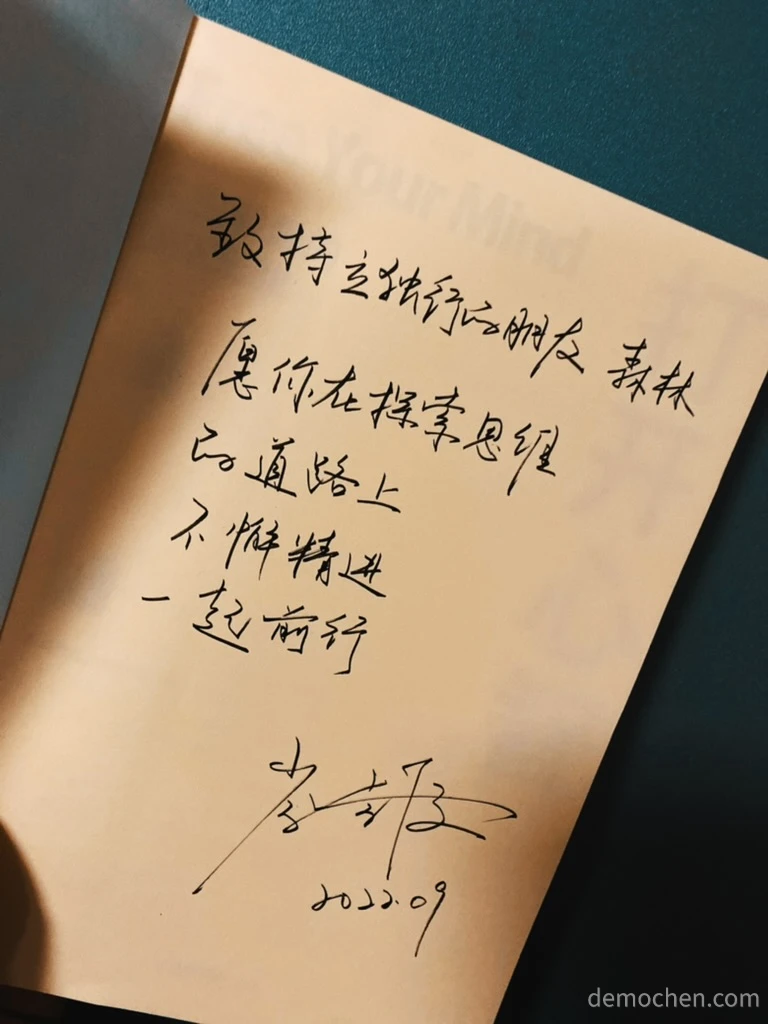 Your Mind
致特立独行的朋友 森林
愿你在探索思维
的道路上
不懈精进
一起前行
2022.09
demochen.com